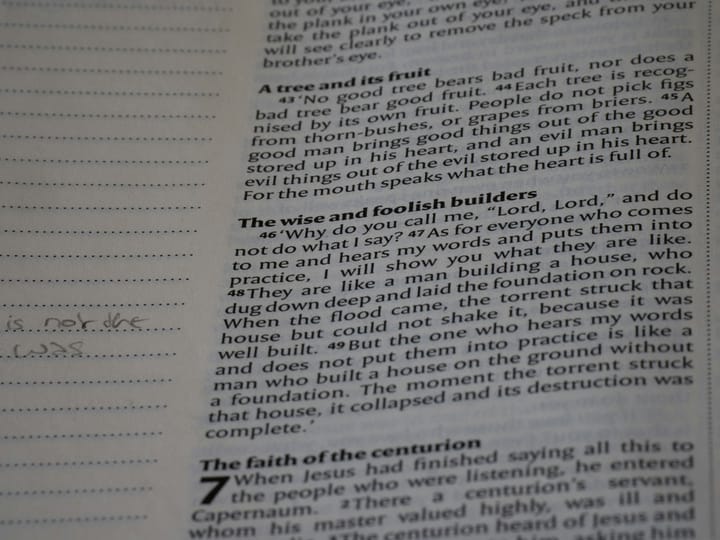 out of your eye,
the plank in your own eye?
take the plank out of your eye, and
will see clearly to remove the speck from your
brother's eye.
A tree and its fruit
43 'No good tree bears bad fruit, nor does a
bad tree bear good fruit. 44 Each tree is recog-
nised by its own fruit. People do not pick figs
from thorn-bushes, or grapes from briers. 45 A
good man brings good things out of the good
stored up in his heart, and an evil man brings
evil things out of the evil stored up in his heart.
For the mouth speaks what the heart is full of.
The wise and foolish builders
46 'Why do you call me, "Lord, Lord," and do
not do what I say? 47 As for everyone who comes
to me and hears my words and puts them into
practice, I will show you what they are like.
48 They are like a man building a house, who
dug down deep and laid the foundation on rock.
When the flood came, the torrent struck that
house but could not shake it, because it was
well built. 49 But the one who hears my words
and does not put them into practice is like a
man who built a house on the ground without
a foundation. The moment the torrent struck
that house, it collapsed and its destruction was
complete.'
The faith of the centurion
7 When Jesus had finished saying all this to
the people who were listening, he entered
Capernaum. 2 There a centurion's servant,
whom his master valued highly, was ill and
The centurion heard of Jesus and
asking him
is not the
was